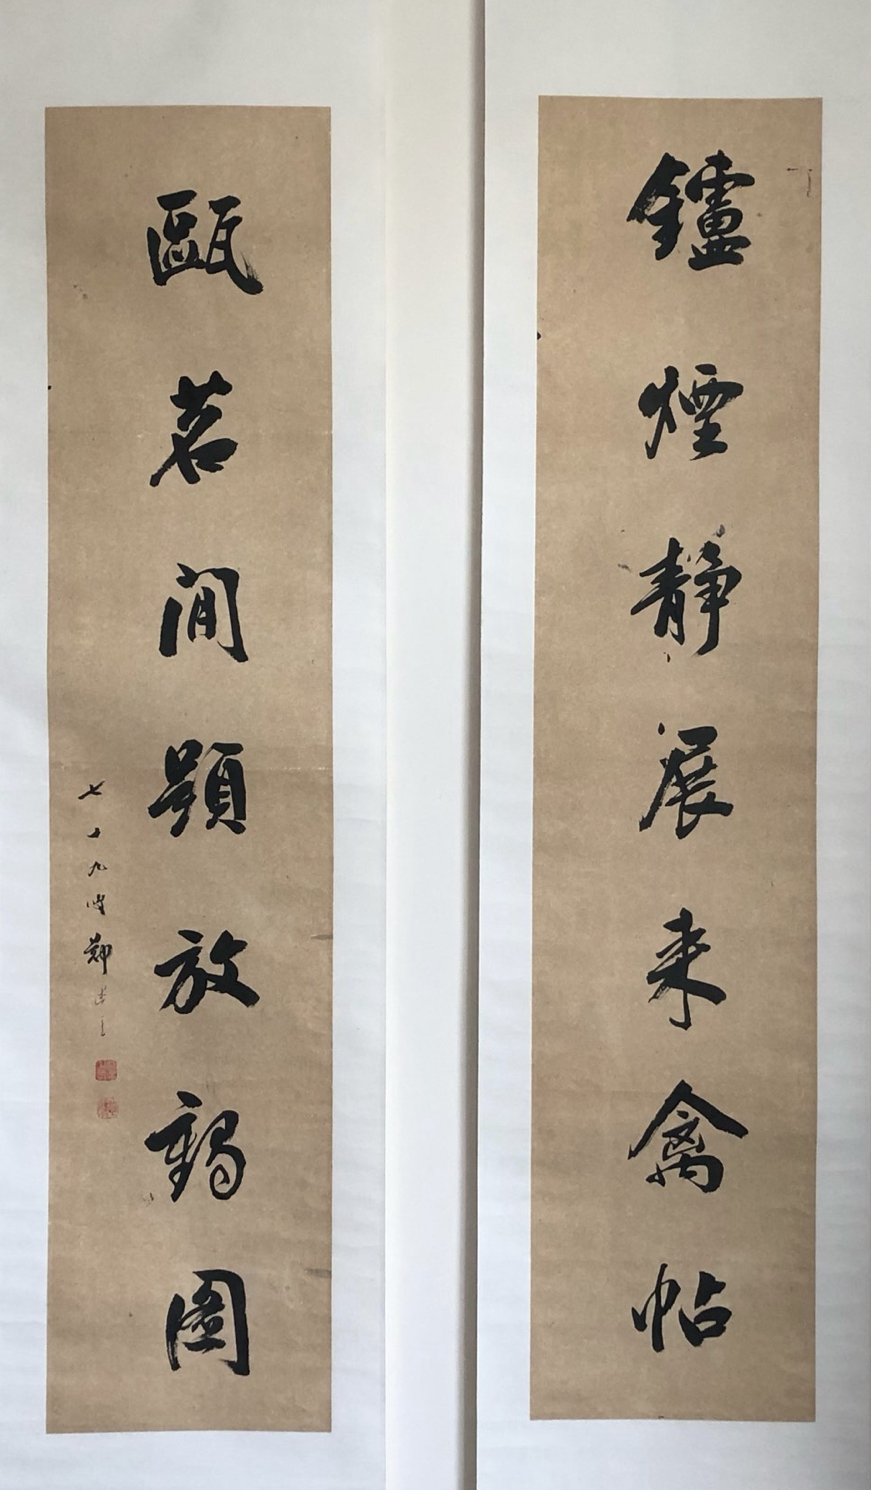 鑪煙静展来禽帖
甌茗閒題放鶴圖
七十九叟鄭